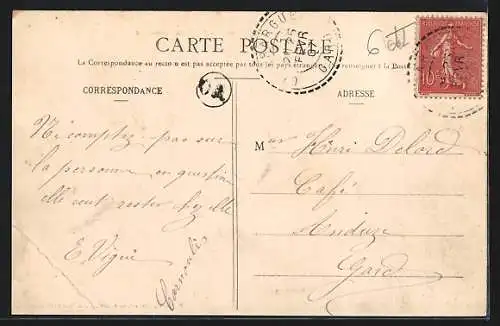 CARTE POSTALE
La Correspondance au recto n'est pas acceptée par tous les pays étrangers
renseigner à la Poste
6
CORRESPONDANCE
ADRESSE
Ni comptez pas sur
la personne en question
elle veut rester chez elle
E. Vigne
M Henri Delord
Café
Anduze
Gard
FEVR
GARD
10